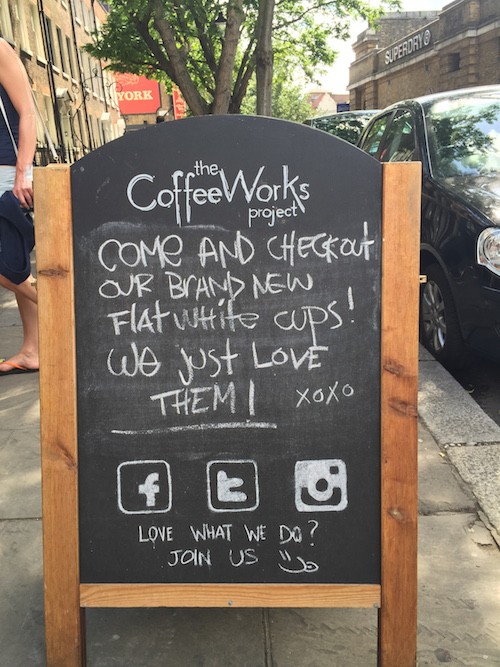 SUPERDRY
YORK
the
CoffeeWorks
project
COME AND CHECK OUT
OUR BRAND NEW
FLAT WHITE CUPS!
WE JUST LOVE
THEM! XOXO
f t
LOVE WHAT WE DO?
JOIN US